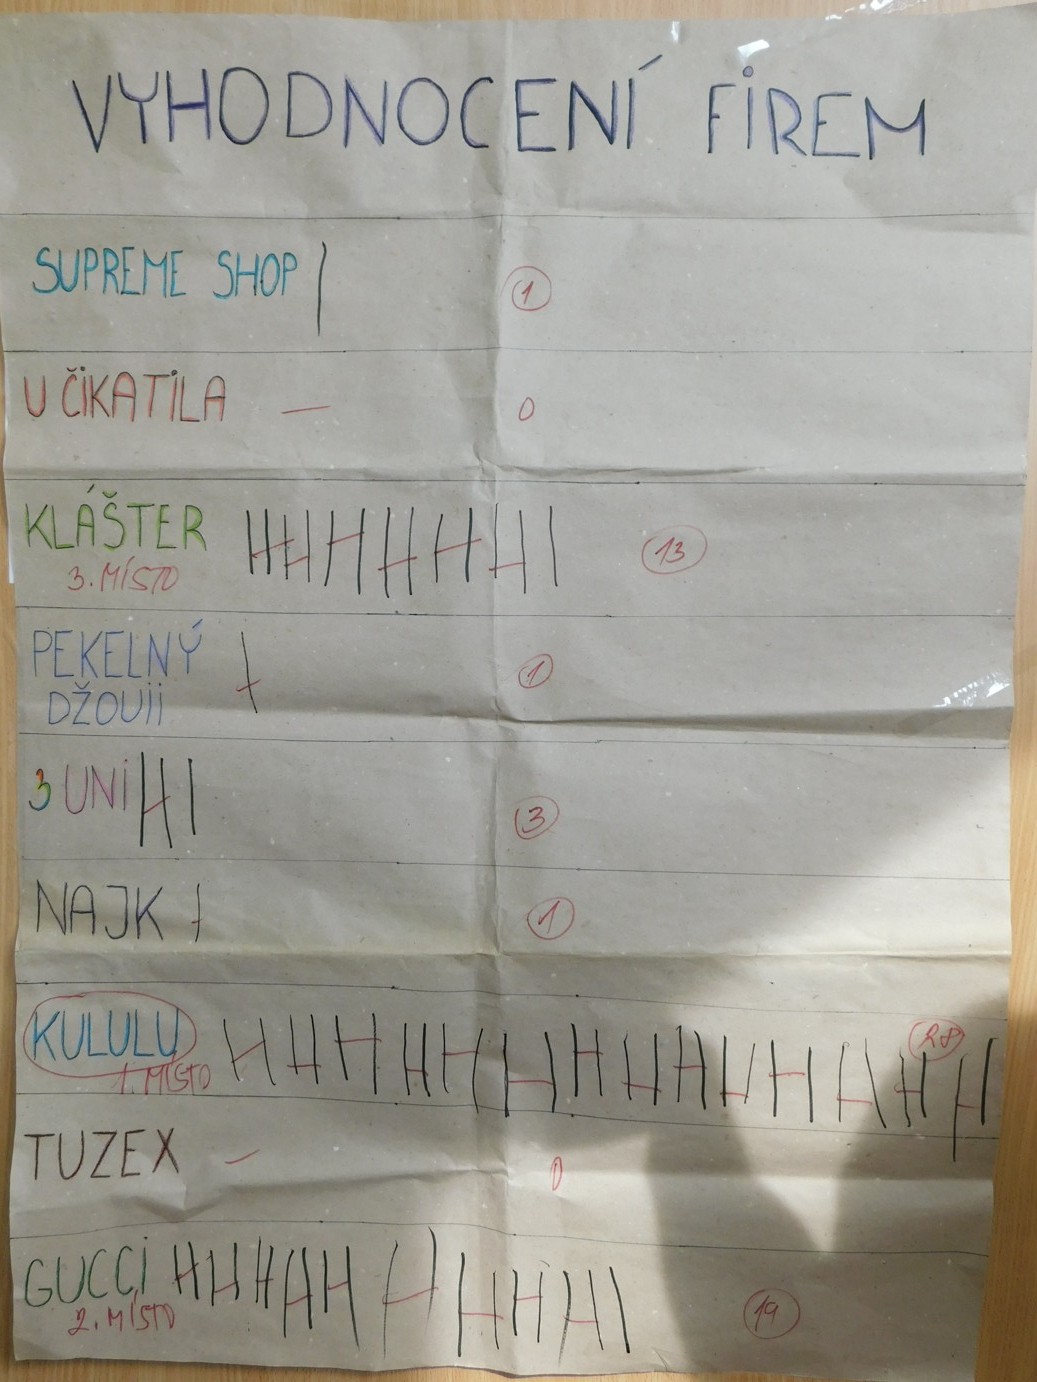 VYHODNOCENÍ FIREM
SUPREME SHOP 1
U ČIKATILA — 0
KLÁŠTER 13
3. MÍSTO
PEKELNÝ 1
DŽOUII
3 UNI 3
NAJK 1
KULULU 28
1. MÍSTO
TUZEX — 0
GUCCI 19
2. MÍSTO